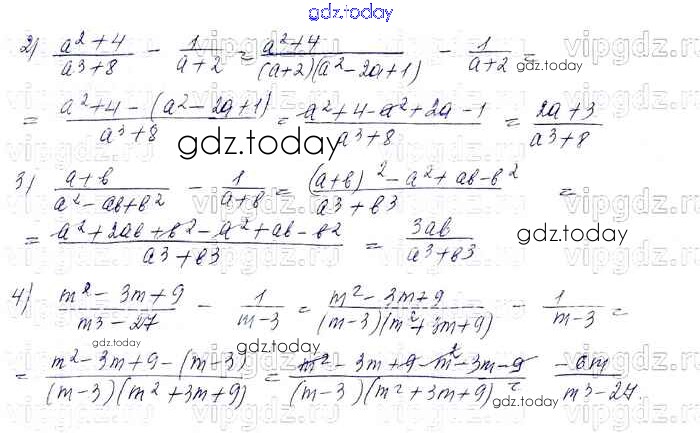 gdz.today
2) \frac{a^2+4}{a^3+8} - \frac{1}{a+2} = \frac{a^2+4}{(a+2)(a^2-2a+1)} - \frac{1}{a+2} =
gdz.today
= \frac{a^2+4-(a^2-2a+1)}{a^3+8} = \frac{a^2+4-a^2+2a-1}{a^3+8} = \frac{2a+3}{a^3+8}
gdz.today
3) \frac{a+b}{a^2-ab+b^2} - \frac{1}{a+b} = \frac{(a+b)^2-a^2+ab-b^2}{a^3+b^3} =
gdz.today
= \frac{a^2+2ab+b^2-a^2+ab-b^2}{a^3+b^3} = \frac{3ab}{a^3+b^3}
4) \frac{m^2-3m+9}{m^3-27} - \frac{1}{m-3} = \frac{m^2-3m+9}{(m-3)(m^2+3m+9)} - \frac{1}{m-3} =
= \frac{m^2-3m+9-(m-3)}{(m-3)(m^2+3m+9)} = \frac{m^2-3m+9-m^2-3m-9}{(m-3)(m^2+3m+9)} \frac{-6m}{m^3-27}
gdz.today
vipgdz.ru